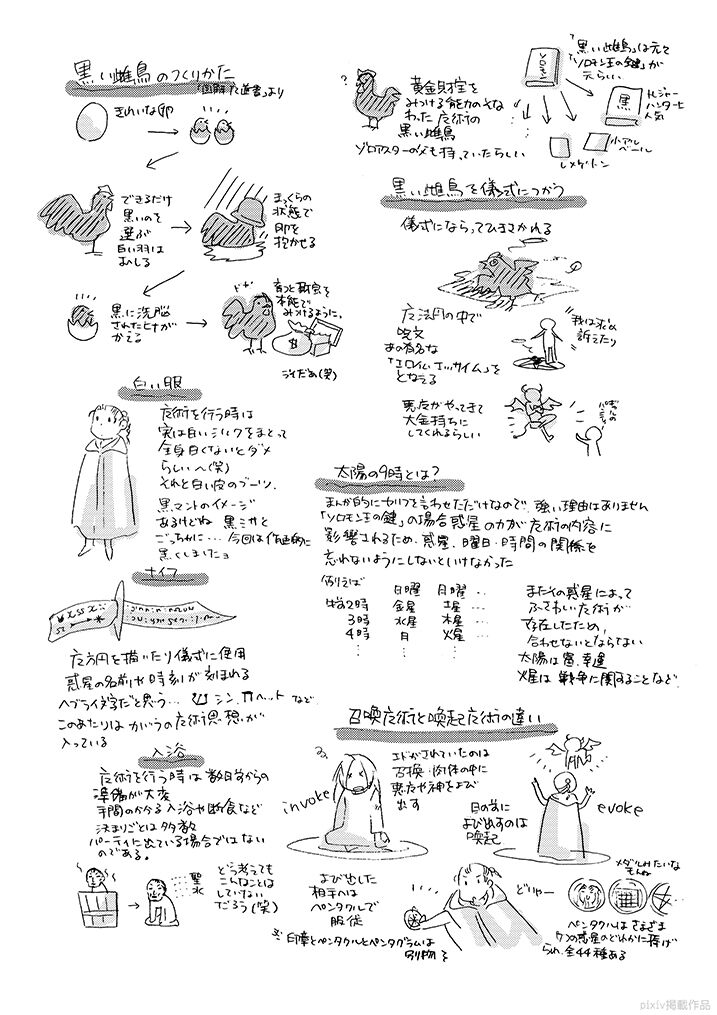 黒い雌鳥のつくりかた
「図解 だ造書」より
きれいな卵
できるだけ
黒いのを
選ぶ
白い羽は
むしる
まっくらの
状態で
卵を
抱かせる
黒に洗脳
されたヒナが
かえる
ドヤ
育つと財宝を
本能で
みつけるように。
?
黄金財宝を
みつける能力のそな
わった魔術の
黒い雌鶏
ゾロアスターの父も持っていたらしい
「黒い雌鳥」は元で
「ソロモン王の鍵」が
元らしい
ソロモン
黒
トレジャー
ハンターに
人気
小アル
ベール
レメゲトン
黒い雌鳥を儀式につかう
儀式にならってひきさかれる
魔法円の中で
呪文
あの有名な
「エロイム エッサイム」を
となえる
我は求め
訴えたり
悪魔がやってきて
大金持ちに
してくれるらしい
白い服
魔術を行う時は
実は白いシルクをまとって
全身白くないとダメ
らしいへ(笑)
それと白い皮のブーツ。
黒マントのイメージ
あるけどね 黒ミサと
ごっちゃに… 今回は作画的に
黒くしましたョ
ナイフ
魔方円を描いたり儀式に使用
惑星の名前や時刻が刻まれる
ヘブライ文字だと思う… シン、ヘットなど
このあたりはカバラの魔術思想が
入っている
入浴
魔術を行う時は数日前からの
準備が大変
手間のかかる入浴や断食など
決まりごとは多数
パーティに出ている場合ではない
のである。
聖水
どう考えても
こんなことは
していない
だろう(笑)
太陽の9時とは?
まんが的にセリフを言わせただけなので、強い理由はありません
「ソロモン王の鍵」の場合惑星の力が魔術の内容に
影響されるため、惑星、曜日、時間の関係を
忘れないようにしないといけなかった
例えば
日曜 月曜 …
2時 金星 土星 …
3時 水星 木星 …
4時 月 火星 …
またその惑星によって
ふさわしい魔術が
存在したため、
合わせないとならない
太陽は富、幸運
火星は戦争に関することなど
召喚魔術と喚起魔術の違い
invoke
エドがされていたのは
召喚・肉体の中に
悪魔や神をよび
出す
目の前に
よび出すのは
喚起
evoke
よび出した
相手へは
ペンタクルで
服従
※印章とペンタクルとペンタグラムは
別物
どりゃー
メダルみたいな
もんね
ペンタクルはさまざま
7つの惑星のどれかに捧げ
られ、全44種ある
pixiv掲載作品